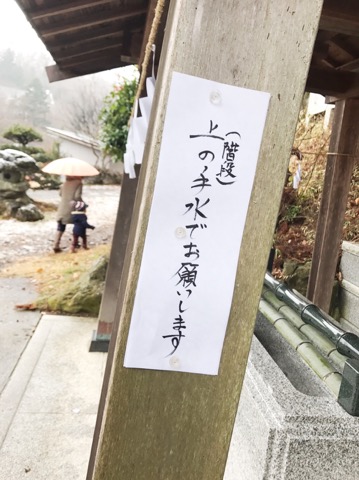 (階段)
上の手水でお願いします